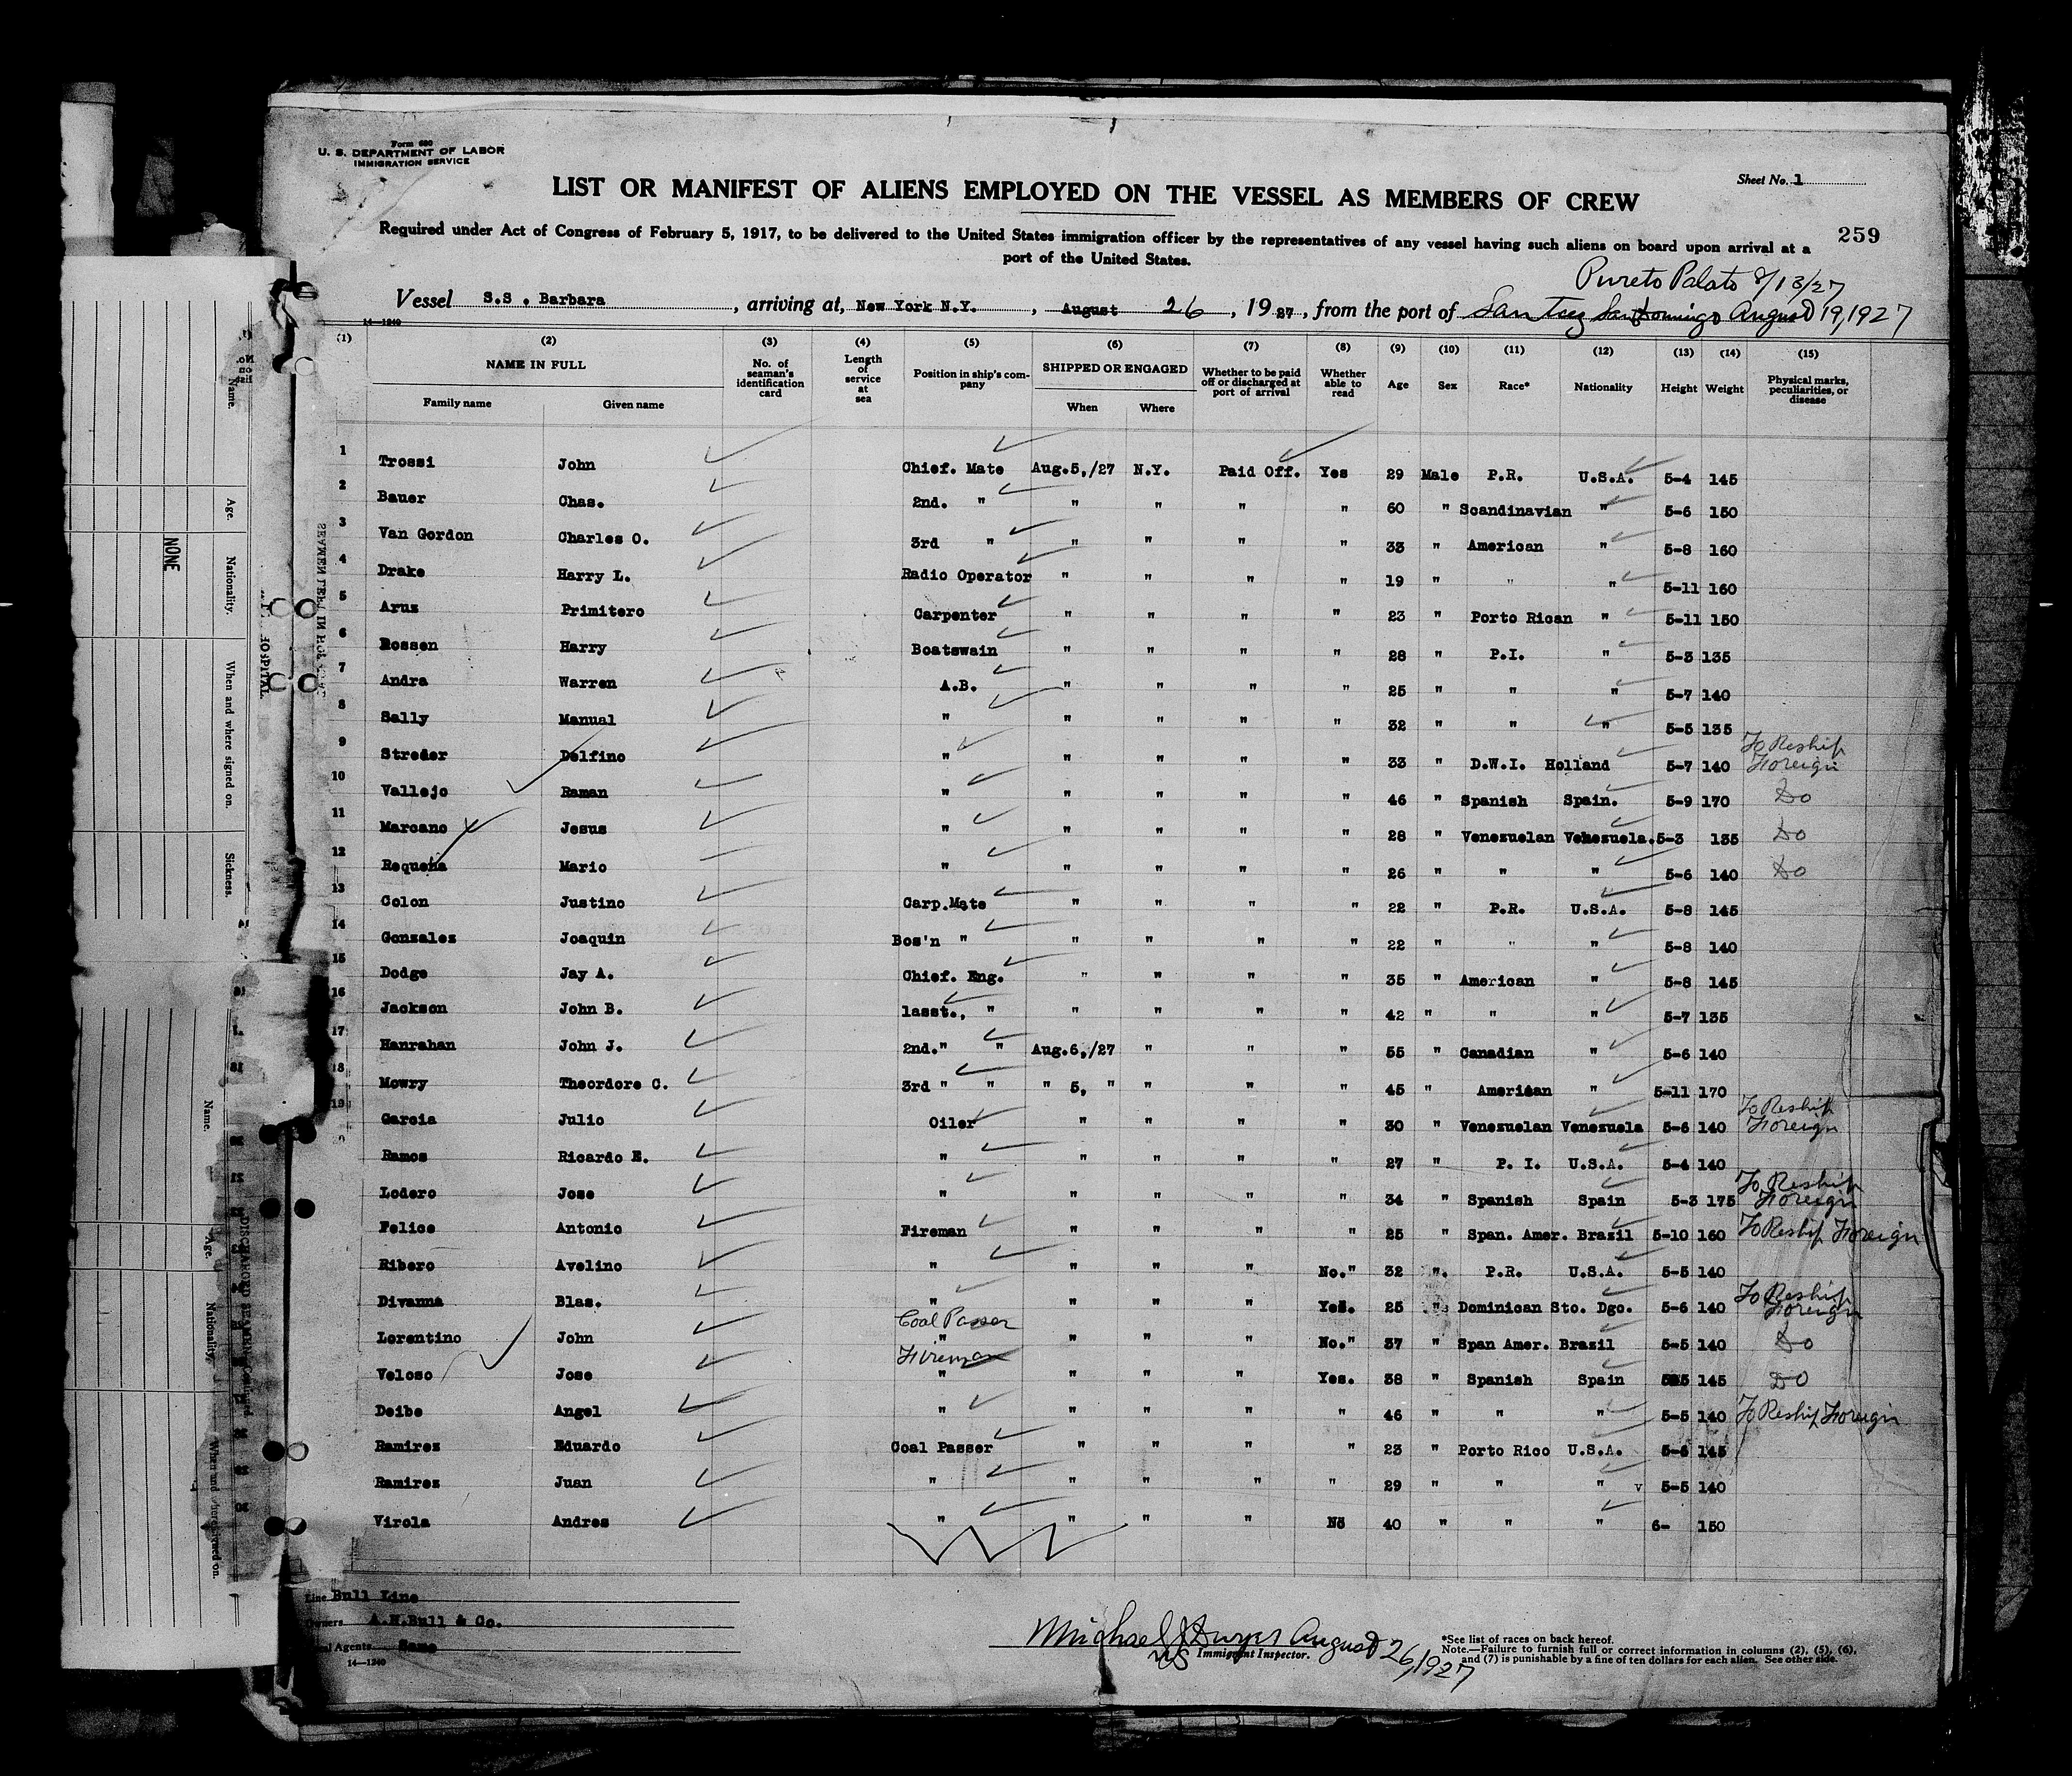 Form 680
U. S. DEPARTMENT OF LABOR
IMMIGRATION SERVICE
Sheet No. 1
LIST OR MANIFEST OF ALIENS EMPLOYED ON THE VESSEL AS MEMBERS OF CREW
259
Required under Act of Congress of February 5, 1917, to be delivered to the United States immigration officer by the representatives of any vessel having such aliens on board upon arrival at a
port of the United States.
Pureto Palato 8/13/27
Vessel S.S. Barbara, arriving at, New York N.Y., August 26, 1927, from the port of Santo Domingo August 19, 1927
14—1240
(1) (2) (3) (4) (5) (6) (7) (8) (9) (10) (11) (12) (13) (14) (15)
NAME IN FULL
Family name Given name
No. of seaman's identification card
Length of service at sea
Position in ship's company
SHIPPED OR ENGAGED
When Where
Whether to be paid off or discharged at port of arrival
Whether able to read
Age Sex Race* Nationality Height Weight
Physical marks, peculiarities, or disease
1 Trossi John Chief. Mate Aug.5,/27 N.Y. Paid Off. Yes 29 Male P.R. U.S.A. 5-4 145
2 Bauer Chas. 2nd. " " " " " 60 " Scandinavian " 5-6 150
3 Van Gordon Charles O. 3rd " " " " " 33 " American " 5-8 160
4 Drake Harry L. Radio Operator " " " " 19 " " " 5-11 160
5 Arus Primitero Carpenter " " " " 23 " Porto Rican " 5-11 150
6 Rossen Harry Boatswain " " " " 28 " P.I. " 5-3 135
7 Andra Warren A.B. " " " " 25 " " " 5-7 140
8 Sally Manual " " " " " 32 " " " 5-5 135
9 Streder Delfino " " " " " 33 " D.W.I. Holland 5-7 140 To Reship Foreign
10 Vallejo Raman " " " " " 46 " Spanish Spain. 5-9 170 Do
11 Marcano Jesus " " " " " 28 " Venezuelan Venezuela. 5-3 135 Do
12 Requena Mario " " " " " 26 " " " 5-6 140 Do
13 Colon Justino Carp.Mate " " " " 22 " P.R. U.S.A. 5-8 145
14 Gonzales Joaquin Bos'n " " " " " 22 " " " 5-8 140
15 Dodge Jay A. Chief. Eng. " " " " 35 " American " 5-8 145
16 Jackson John B. 1asst., " " " " " 42 " " " 5-7 135
17 Hanrahan John J. 2nd." " Aug.6,/27 " " " 55 " Canadian " 5-6 140
18 Mowry Theordore C. 3rd " " " 5, " " " " 45 " American " 5-11 170
19 Garcia Julio Oiler " " " " 30 " Venezuelan Venezuela 5-6 140 To Reship Foreign
Ramos Ricardo E. " " " " " 27 " P. I. U.S.A. 5-4 140
Lodero Jose " " " " " 34 " Spanish Spain 5-3 175 To Reship Foreign
Felice Antonio Fireman " " " " 25 " Span. Amer. Brazil 5-10 160 To Reship Foreign
Ribero Avelino " " " " No." 32 " P.R. U.S.A. 5-5 140
Divanna Blas. " " " " Yes. 25 " Dominican Sto. Dgo. 5-6 140 To Reship Foreign
Lorentino John Coal Passer " " " " No." 37 " Span Amer. Brazil 5-5 140 Do
Veloso Jose Fireman " " " " Yes. 38 " Spanish Spain 145 DO
Deibe Angel " " " " " 46 " " " 5-5 140 To Reship Foreign
Ramirez Eduardo Coal Passer " " " " 23 " Porto Rico U.S.A. 5-6 145
Ramirez Juan " " " " " 29 " " " 5-5 140
Virola Andres " " " " No 40 " " " 6- 150
Line Bull Line
Owners A.H.Bull & Co.
Agents Same
14—1240
Michael J Dwyer August 26, 1927
Immigrant Inspector.
*See list of races on back hereof.
Note.—Failure to furnish full or correct information in columns (2), (5), (6),
and (7) is punishable by a fine of ten dollars for each alien. See other side.
Name.
Age.
Nationality.
When and where signed on.
Sickness.
NONE
HOSPITAL
Name.
Age.
Nationality.
When and where signed on.
DISCHARGED SEAMEN